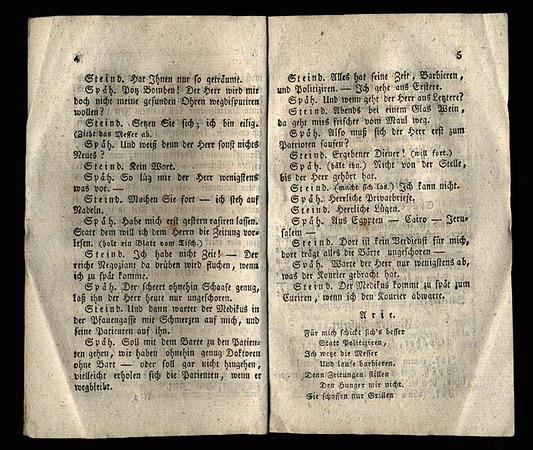 4
Steind. Hat Ihnen nur so geträumt.
Späh. Potz Bomben! Der Herr wird mir
doch nicht meine gesunden Ohren wegdisputiren
wollen?
Steind. Setzen Sie sich; ich bin eilig.
(Zieht das Messer ab.
Späh. Und weiß denn der Herr sonst nichts
Neues?
Steind. Kein Wort.
Späh. So lüg mir der Herr wenigstens
was vor. —
Steind. Machen Sie fort — ich steh auf
Nadeln.
Späh. Habe mich erst gestern rasiren lassen.
Statt dem will ich dem Herrn die Zeitung vor-
lesen. (holt ein Blatt vom Tisch.)
Steind. Ich habe nicht Zeit! — Der
reiche Negoziant da drüben wird fluchen, wenn
ich zu spät komme.
Späh. Der scheert ohnehin Schaafe genug,
laß ihn der Herr heute nur ungeschoren.
Steind. Und dann wartet der Medikus in
der Pfauengasse mit Schmerzen auf mich, und
seine Patienten auf ihn.
Späh. Soll mit dem Barte zu den Patien-
ten gehen, wir haben ohnehin genug Doktoren
ohne Bart — oder soll gar nicht hingehen,
vielleicht erholen sich die Patienten, wenn er
wegbleibt.
5
Steind. Alles hat seine Zeit, Barbieren,
und Politiziren. — Ich geh aus Erstere.
Späh. Und wenn geht der Herr aus Letztere?
Steind. Abends bei einem Glas Wein,
da geht mirs frischer vom Maul weg.
Späh. Also muß sich der Herr erst zum
Patrioten saufen?
Steind. Ergebener Diener! (will fort.)
Späh. (hält ihn.) Nicht von der Stelle,
bis der Herr gehört hat.
Steind. (macht sich los.) Ich kann nicht.
Späh. Herrliche Privatbriefe.
Steind. Herrliche Lügen.
Späh. Aus Egypten — Cairo — Jeru-
salem —
Steind. Dort ist kein Verdienst für mich,
dort trägt alles die Bärte ungeschoren —
Späh. Warte der Herr nur wenigstens ab,
was der Kourier gebracht hat.
Steind. Der Medikus kommt zu spät zum
Curiren, wenn ich den Kourier abwarte.
Arie.
Für mich schickt sich's besser
Statt Politiziren,
Ich wetze die Messer
Und laufe barbieren.
Denn Zeitungen stillen
Den Hunger mir nicht.
Sie schaffen nur Grillen